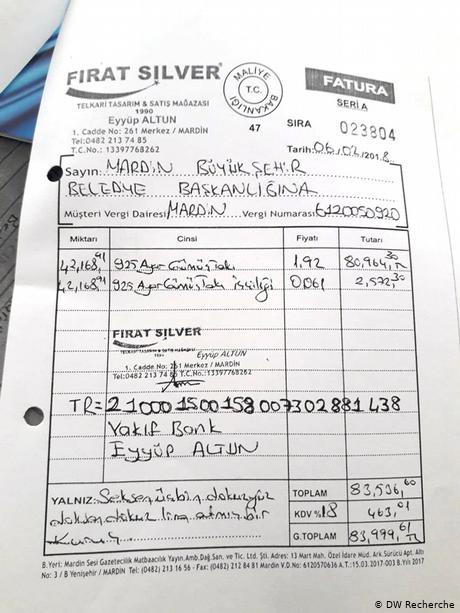 FIRAT SILVER
TELKARİ TASARIM & SATIŞ MAĞAZASI
1990
Eyyüp ALTUN
1. Cadde No: 261 Merkez / MARDİN
Tel:0482 213 74 85
T.C.No.: 13397768262
MALİYE
T.C.
BAKANLIĞI
47
FATURA
SERİ A
SIRA 023804
Tarih:06/02/2018
Sayın: MARDİN BÜYÜKŞEHİR
BELEDİYE BAŞKANLIĞINA
Müşteri Vergi Dairesi MARDİN Vergi Numarası 6120050920
Miktarı Cinsi Fiyatı Tutarı
42,168,91 925 Ayar Gümüş Takı 1.92 80,964,30 TL
42,168,91 925 Ayar Gümüş Takı işçiliği 0.061 2,572,30
FIRAT SILVER
TELKARİ TASARIM & SATIŞ MAĞAZASI
1990 Eyyüp ALTUN
1. Cadde No: 261 Merkez / MARDİN
Tel:0482 213 74 85 T.C.No.: 13397768262
TR= 21000 1500 158 007302881438
Vakıf Bank
EYYÜP ALTUN
YALNIZ: Seksenüçbin dokuzyüz
doksan dokuz lira altmış bir
Kuruş
TOPLAM 83,536,60
KDV %18 463,01
G.TOPLAM 83,999,61 TL
B.Yeri: Mardin Sesi Gazetecilik Matbaacılık Yayın.Amb.Dağ.San. ve Tic. Ltd. Şti. Adres: 13 Mart Mah. Özel İdare Müd. Ark Sürücü Apt. Altı
No: 3 / B Yenişehir / MARDİN Tel: (0482) 213 16 56 - Fax: (0482) 212 84 81 Mardin V.D.No: 6120570636 A.T.: 15.03.2017-003 B.Yılı 2017
© DW Recherche